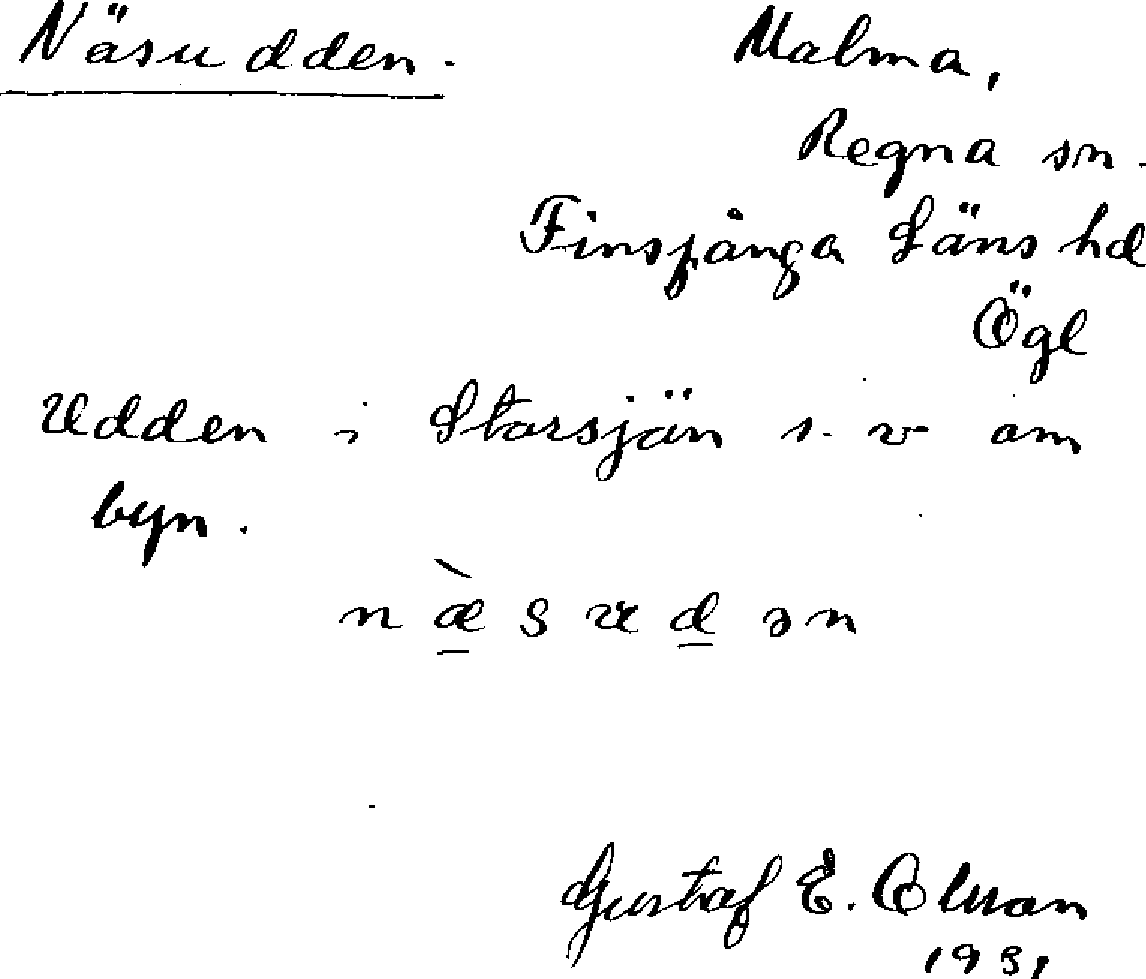 Näsudden. Malma,
Regna sn.
Finspånga Läns hd
Ögl
Udden i Storsjön s. v om
byn.
næ̀sudən
Gustaf E. Olsson
1931